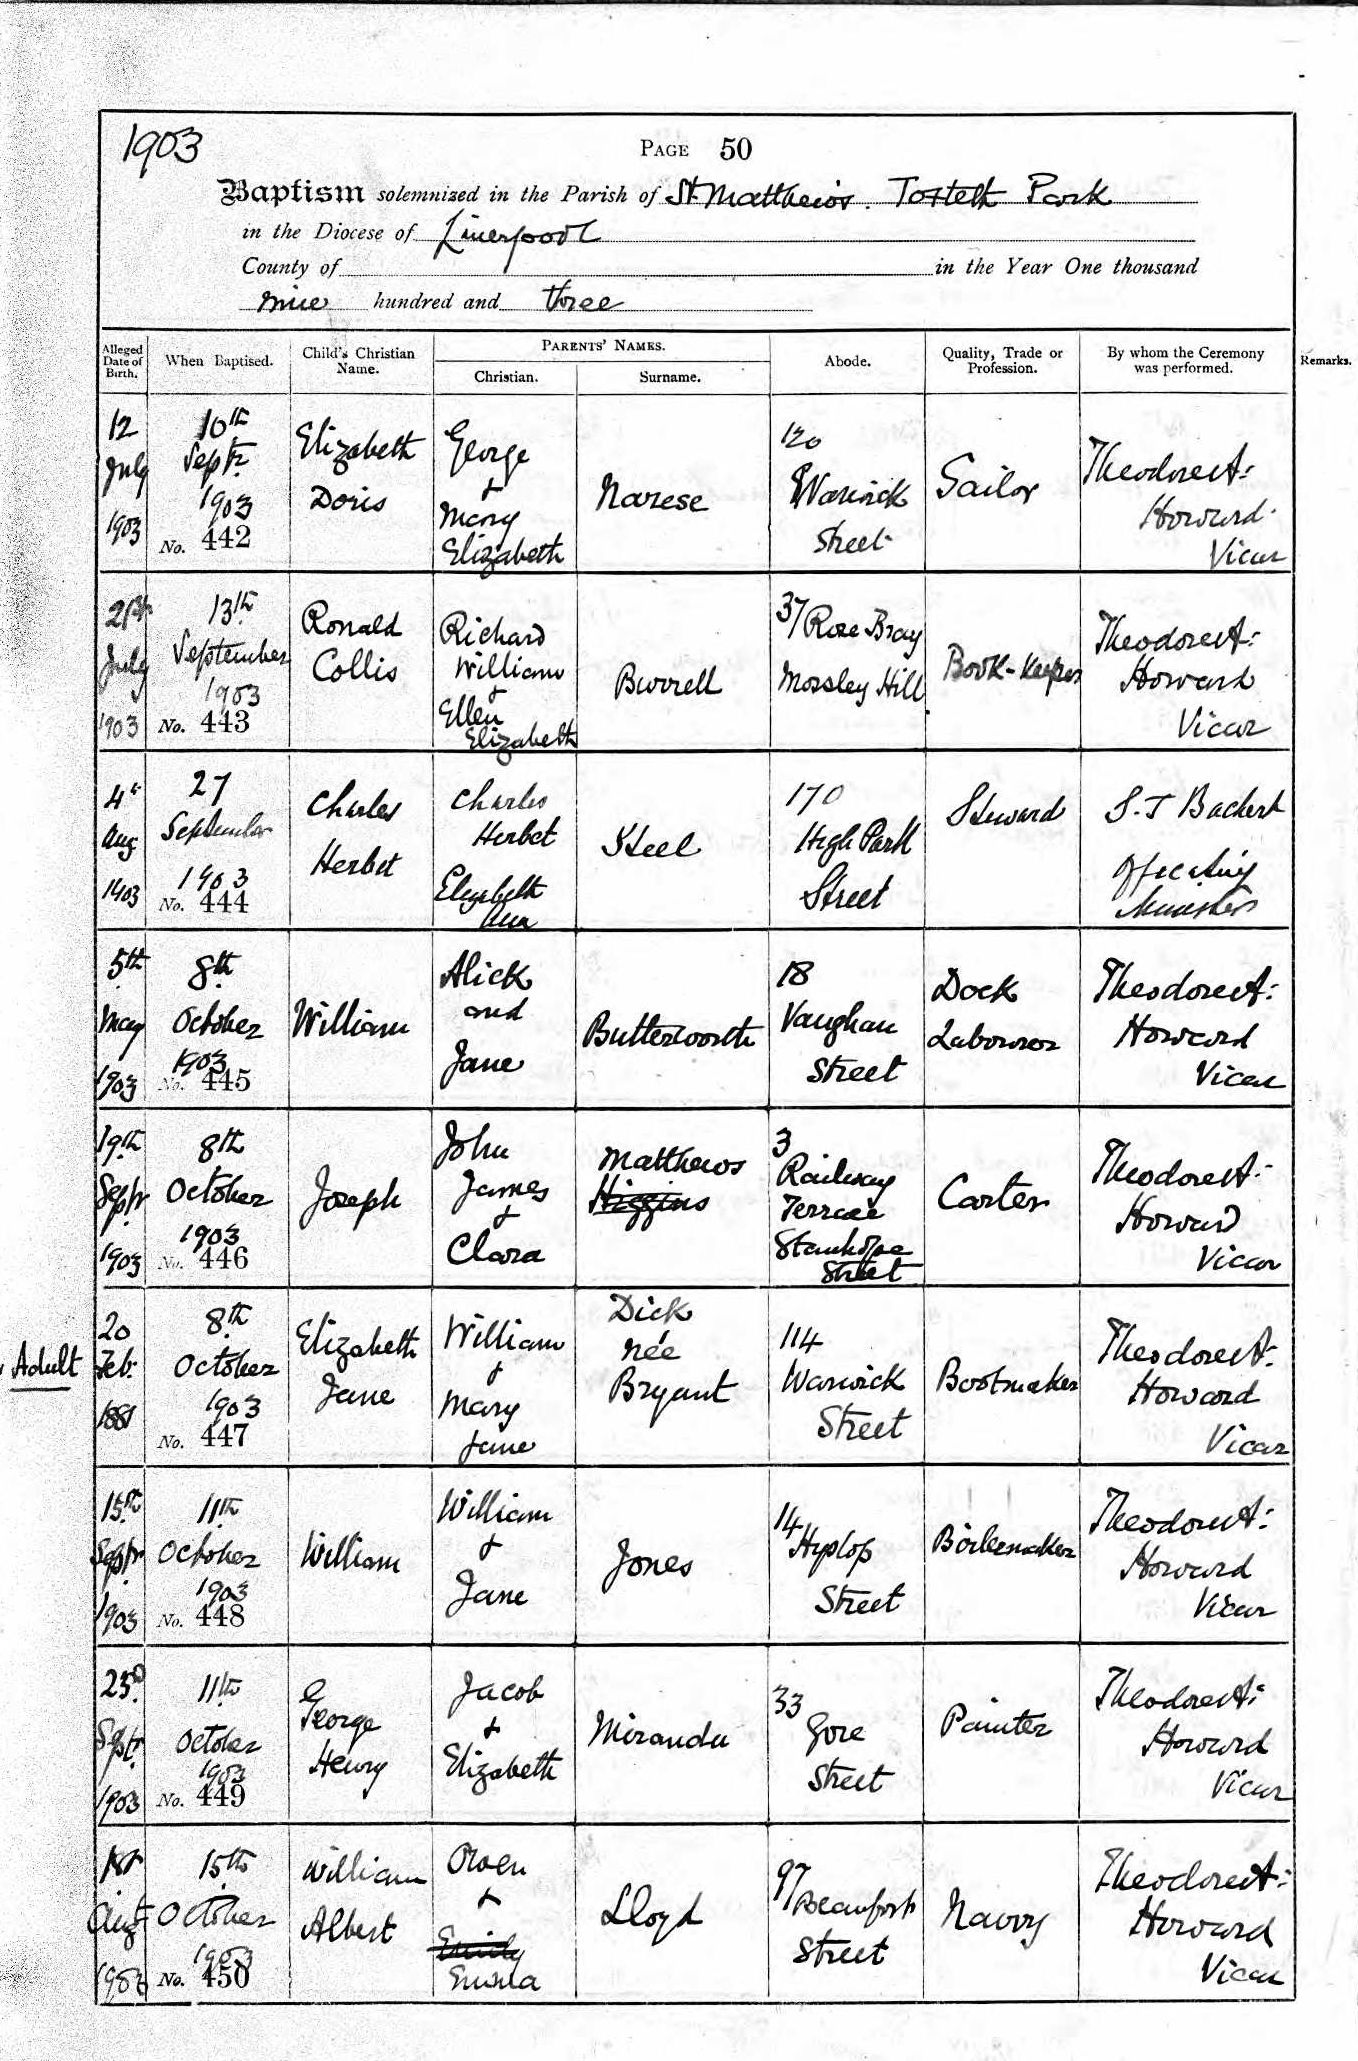 1903
PAGE 50
Baptism solemnized in the Parish of St Matthew's. Toxteth Park
in the Diocese of Liverpool
County of in the Year One thousand
nine hundred and three
Alleged Date of Birth. When Baptised. Child's Christian Name. PARENTS' NAMES. Christian. Surname. Abode. Quality, Trade or Profession. By whom the Ceremony was performed. Remarks.
12 July 1903
10th Septr 1903 No. 442
Elizabeth Doris
George & Mary Elizabeth
Narese
120 Warwick Street
Sailor
Theodore A: Howard. Vicar
21st July 1903
13th September 1903 No. 443
Ronald Collis
Richard William & Ellen Elizabeth
Burrell
37 Rose Bray Mossley Hill
Book-Keeper
Theodore A: Howard Vicar
4th Aug. 1903
27 September 1903 No. 444
Charles Herbet
Charles Herbet Elizabeth Ann
Steel
170 High Park Street
Steward
S. T Backert Officiating Minister
5th May 1903
8th October 1903 No. 445
William
Alick and Jane
Butterworth
18 Vaughan Street
Dock Labourer
Theodore A: Howard Vicar
19th Septr 1903
8th October 1903 No. 446
Joseph
John James & Clara
Matthews Higgins
3 Railway Terrace Stanhope Street
Carter
Theodore A: Howard Vicar
Adult
20 Feb. 1881
8th October 1903 No. 447
Elizabeth Jane
William & Mary Jane
Dick née Bryant
114 Warwick Street
Bootmaker
Theodore A: Howard Vicar
15th Septr 1903
11th October 1903 No. 448
William
William & Jane
Jones
14 Hyslop Street
Boilermaker
Theodore A: Howard Vicar
23D Septr 1903
11th October 1903 No. 449
George Henry
Jacob & Elizabeth
Miranda
33 Gore Street
Painter
Theodore A: Howard Vicar
1st Augt 1903
15th October 1903 No. 450
William Albert
Owen & Emily Emma
Lloyd
97 Beaufort Street
Navvy
Theodore A: Howard Vicar